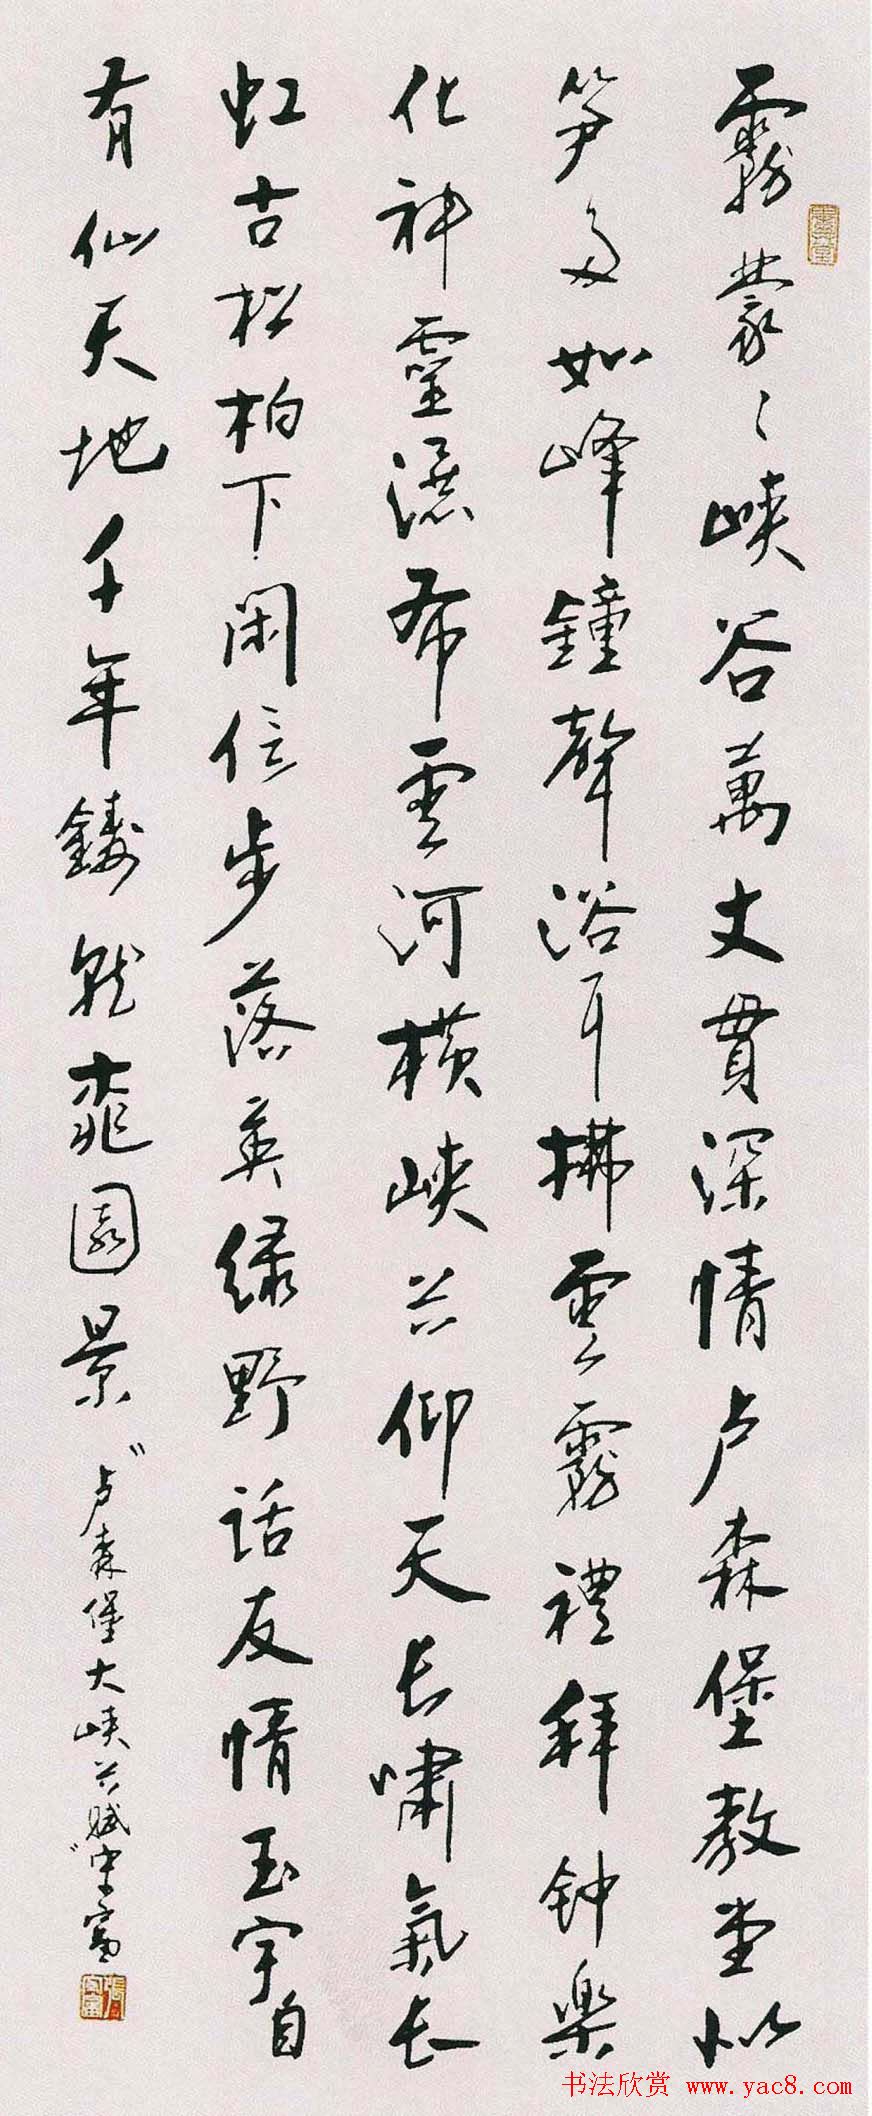 霧蒙々峽谷萬丈貫深情卢森堡教堂似
笋多如峰鐘聲浴耳拂雲霧禮拜钟樂
化神靈瀑布雲河橫峽谷仰天长啸氣长
虹古松柏下闲信步落英绿野话友情玉宇自
有仙天地千年鏤就桃園景
"卢森堡大峡谷赋"忠富
书法欣赏 www.yac8.com